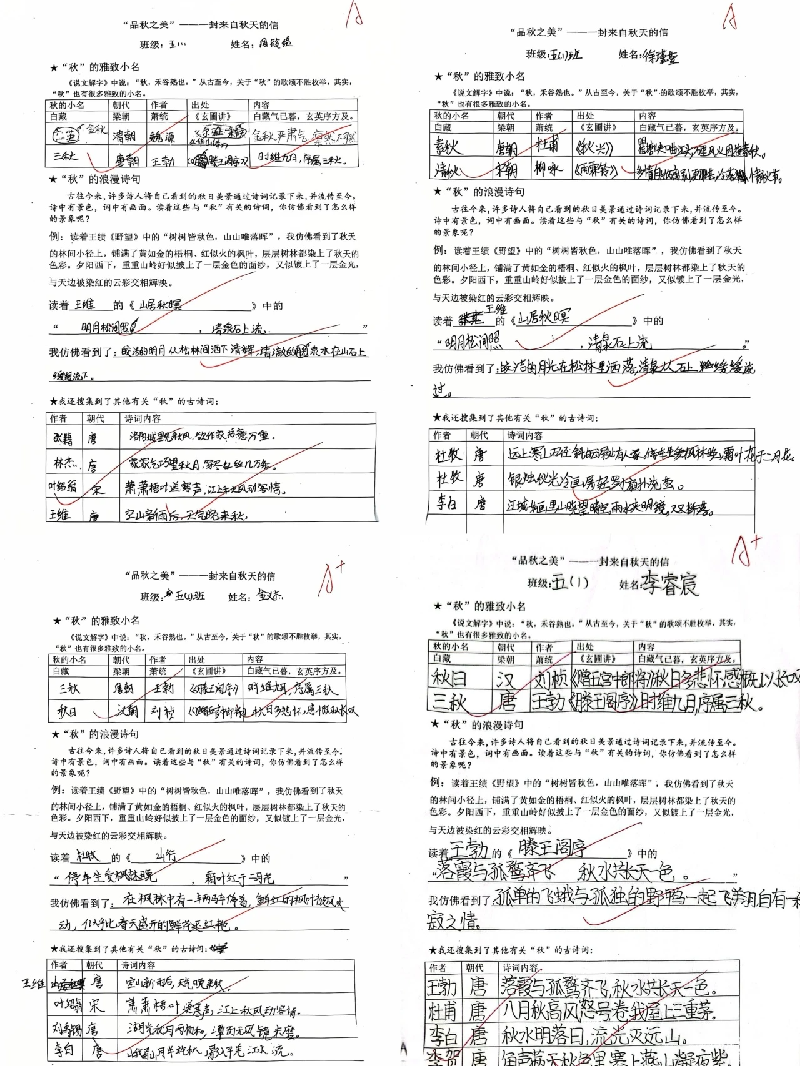 A
“品秋之美”———一封来自秋天的信
班级: 五(1) 姓名:
★“秋”的雅致小名
《说文解字》中说：“秋，禾谷熟也。”从古至今，关于“秋”的歌颂不胜枚举，其实，
“秋”也有很多雅致的小名。
秋的小名 朝代 作者 出处 内容
白藏 梁朝 萧统 《玄圃讲》 白藏气已暮，玄英序方及。
金秋 清朝
三秋 唐朝 王勃 时维九月,序属三秋。
★“秋”的浪漫诗句
古往今来,许多诗人将自己看到的秋日美景通过诗词记录下来、并流传至今。
诗中有景色，词中有画面。读着这些与“秋”有关的诗词，你仿佛看到了怎么样
的景象呢？
例：读着王绩《野望》中的“树树皆秋色，山山唯落晖”，我仿佛看到了秋天
的林间小径上，铺满了黄如金的梧桐、红似火的枫叶，层层树林都染上了秋天的
色彩。夕阳西下，重重山岭好似披上了一层金色的面纱，又似镀上了一层金光，
与天边被染红的云彩交相辉映。
读着 王维 的《 山居秋暝 》中的
“ 明月松间照 ， 清泉石上流。 ”
我仿佛看到了: 皎洁的明月从松林间洒下清辉,清澈的泉水在山石上
缓缓流下。
★我还搜集到了其他有关“秋”的古诗词:
作者 朝代 诗词内容
张籍 唐 洛阳城里见秋风,欲作家书意万重。
林杰 唐
叶绍翁 宋 萧萧梧叶送寒声,江上秋风动客情。
王维 唐 空山新雨后,天气晚来秋。
A
“品秋之美”———一封来自秋天的信
班级: 五(1)班 姓名:
★“秋”的雅致小名
《说文解字》中说：“秋，禾谷熟也。”从古至今，关于“秋”的歌颂不胜枚举，其实，
“秋”也有很多雅致的小名。
秋的小名 朝代 作者 出处 内容
白藏 梁朝 萧统 《玄圃讲》 白藏气已暮，玄英序方及。
唐朝 杜甫
清秋 宋朝 柳永
★“秋”的浪漫诗句
古往今来,许多诗人将自己看到的秋日美景通过诗词记录下来、并流传至今。
诗中有景色，词中有画面。读着这些与“秋”有关的诗词，你仿佛看到了怎么样
的景象呢？
例：读着王绩《野望》中的“树树皆秋色，山山唯落晖”，我仿佛看到了秋天
的林间小径上，铺满了黄如金的梧桐、红似火的枫叶，层层树林都染上了秋天的
色彩。夕阳西下，重重山岭好似披上了一层金色的面纱，又似镀上了一层金光，
与天边被染红的云彩交相辉映。
读着 王维 的《 山居秋暝 》中的
“ 明月松间照 ， 清泉石上流 。”
我仿佛看到了: 皎洁的月光在松林里洒落,清泉从石上缓缓流
过。
★我还搜集到了其他有关“秋”的古诗词:
作者 朝代 诗词内容
杜牧 唐
杜牧 唐
李白 唐
A+
“品秋之美”———一封来自秋天的信
班级: 五(1)班 姓名:
★“秋”的雅致小名
《说文解字》中说：“秋，禾谷熟也。”从古至今，关于“秋”的歌颂不胜枚举，其实，
“秋”也有很多雅致的小名。
秋的小名 朝代 作者 出处 内容
白藏 梁朝 萧统 《玄圃讲》 白藏气已暮，玄英序方及。
三秋 唐朝 王勃 《滕王阁序》 时维九月,序属三秋
秋日 汉朝 刘桢
★“秋”的浪漫诗句
古往今来,许多诗人将自己看到的秋日美景通过诗词记录下来、并流传至今。
诗中有景色，词中有画面。读着这些与“秋”有关的诗词，你仿佛看到了怎么样
的景象呢？
例：读着王绩《野望》中的“树树皆秋色，山山唯落晖”，我仿佛看到了秋天
的林间小径上，铺满了黄如金的梧桐、红似火的枫叶，层层树林都染上了秋天的
色彩。夕阳西下，重重山岭好似披上了一层金色的面纱，又似镀上了一层金光，
与天边被染红的云彩交相辉映。
读着 杜牧 的《 山行 》中的
“ 停车坐爱枫林晚 ， 霜叶红于二月花 ”
我仿佛看到了: 在枫林中有一辆马车停着,
★我还搜集到了其他有关“秋”的古诗词:
作者 朝代 诗词内容
王维 唐 空山新雨后,天气晚来秋。
叶绍翁 宋 萧萧梧叶送寒声,江上秋风动客情。
刘禹锡 唐 湖光秋月两相和,潭面无风镜未磨。
李白 唐 峨眉山月半轮秋,影入平羌江水流。
A+
“品秋之美”———一封来自秋天的信
班级: 五(1) 姓名: 李睿宸
★“秋”的雅致小名
《说文解字》中说：“秋，禾谷熟也。”从古至今，关于“秋”的歌颂不胜枚举，其实，
“秋”也有很多雅致的小名。
秋的小名 朝代 作者 出处 内容
白藏 梁朝 萧统 《玄圃讲》 白藏气已暮，玄英序方及。
秋日 汉 刘桢 秋日多悲怀,感慨以长叹
三秋 唐 王勃 《滕王阁序》 时维九月,序属三秋。
★“秋”的浪漫诗句
古往今来,许多诗人将自己看到的秋日美景通过诗词记录下来、并流传至今。
诗中有景色，词中有画面。读着这些与“秋”有关的诗词，你仿佛看到了怎么样
的景象呢？
例：读着王绩《野望》中的“树树皆秋色，山山唯落晖”，我仿佛看到了秋天
的林间小径上，铺满了黄如金的梧桐、红似火的枫叶，层层树林都染上了秋天的
色彩。夕阳西下，重重山岭好似披上了一层金色的面纱，又似镀上了一层金光，
与天边被染红的云彩交相辉映。
读着 王勃 的《 滕王阁序 》中的
“落霞与孤鹜齐飞 秋水共长天一色 。”
我仿佛看到了: 孤单的飞蛾与孤独的野鸭一起飞翔,自有一种
寂之情。
★我还搜集到了其他有关“秋”的古诗词:
作者 朝代 诗词内容
王勃 唐 落霞与孤鹜齐飞,秋水共长天一色。
杜甫 唐 八月秋高风怒号,卷我屋上三重茅。
李白 唐 秋水明落日,流光灭远山。
李贺 唐 角声满天秋色里,塞上燕脂凝夜紫。